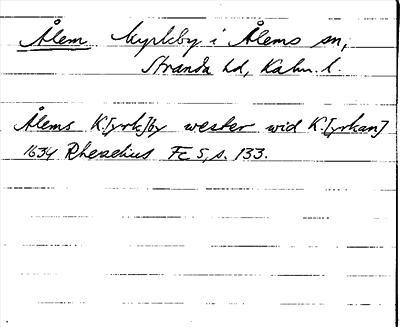 Ålem kyrkby i Ålems sn,
Stranda hd, Kalm. l.
Ålems K.[yrk]by wester wid K.[yrkan]
1634 Rhezelius FE 5, s. 133.